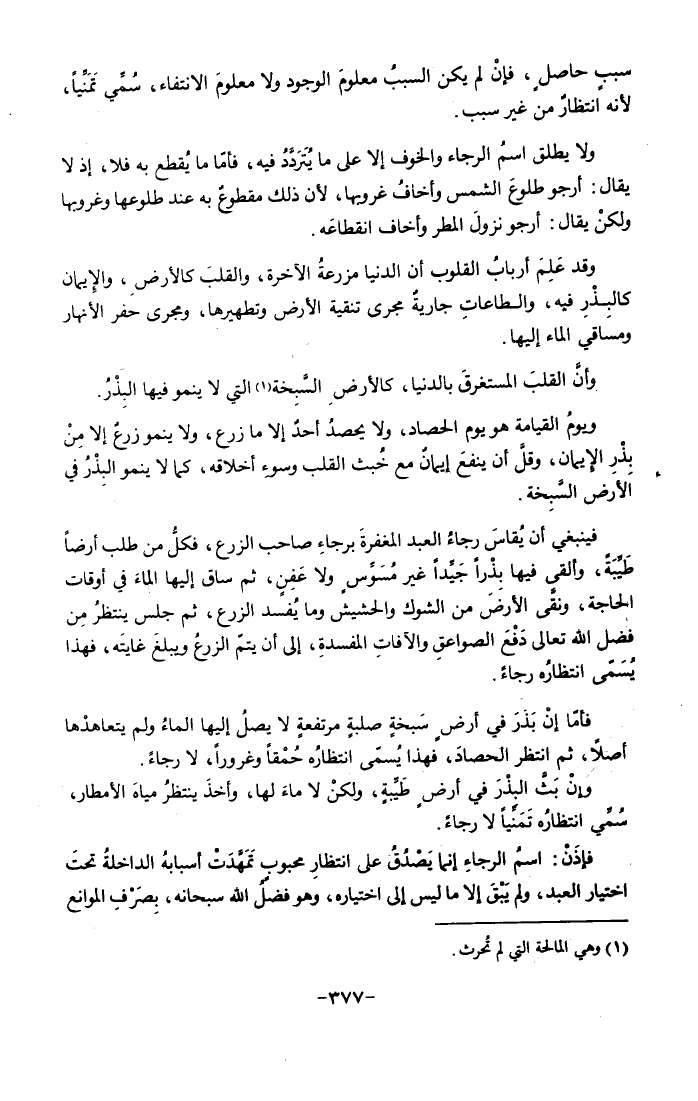 سببٍ حاصلٍ، فإنْ لم يكن السببُ معلومَ الوجود ولا معلومَ الانتفاء، سُمِّي تَمَنِّياً،
لأنه انتظارٌ من غير سبب.
ولا يطلق اسمُ الرجاء والخوف إلا على ما يُتَرَدَّدُ فيه، فأمّا ما يُقطع به فلا، إذ لا
يقال: أرجو طلوعَ الشمس وأخافُ غروبها، لأن ذلك مقطوعٌ به عند طلوعها وغروبها
ولكنْ يقال: أرجو نزولَ المطر وأخاف انقطاعَه.
وقد عَلِمَ أربابُ القلوب أن الدنيا مزرعةُ الآخرة، والقلبَ كالأرضِ، والإيمان
كالبِذْرِ فيه، والطاعاتِ جاريةٌ مجرى تنقية الأرض وتطهيرها، ومجرى حفر الأنهار
ومساقي الماء إليها.
وأنَّ القلبَ المستغرقَ بالدنيا، كالأرضِ السَّبِخة(١) التي لا ينمو فيها البِذْرُ.
ويومُ القيامة هو يوم الحصاد، ولا يحصدُ أحدٌ إلا ما زرع، ولا ينمو زرعٌ إلا مِنْ
بِذْرِ الإيمان، وقلَّ أن ينفعَ إيمانٌ مع خُبث القلب وسوءِ أخلاقه، كما لا ينمو البِذْرُ في
الأرض السَّبِخة.
فينبغي أن يُقاسَ رجاءُ العبد المغفرةَ برجاءِ صاحب الزرع، فكلُّ من طلب أرضاً
طَيِّبَةً، وألقى فيها بِذْراً جَيِّداً غير مُسَوَّسٍ ولا عَفِنٍ، ثم ساق إليها الماءَ في أوقات
الحاجة، ونقَّى الأرضَ من الشوك والحشيش وما يُفسد الزرع، ثم جلس ينتظرُ مِن
فضل الله تعالى دَفْعَ الصواعقِ والآفاتِ المفسدةِ، إلى أن يتمّ الزرعُ ويبلغَ غايتَه، فهذا
يُسَمّى انتظارُه رجاءً.
فأمّا إنْ بَذَرَ في أرضٍ سَبخةٍ صلبةٍ مرتفعةٍ لا يصلُ إليها الماءُ ولم يتعاهدْها
أصلًا، ثم انتظر الحصادَ، فهذا يُسمّى انتظارُه حُمْقاً وغروراً، لا رجاءً.
وإنْ بَثَّ البِذْرَ في أرضٍ طَيِّبةٍ، ولكنْ لا ماءَ لها، وأخذَ ينتظرُ مياهَ الأمطار،
سُمِّي انتظارُه تَمَنِّياً لا رجاءً.
فإذَنْ: اسمُ الرجاءِ إنما يَصْدُقُ على انتظارِ محبوبٍ تَمَهَّدَتْ أسبابهُ الداخلةُ تحتَ
اختيار العبد، ولم يَبْقَ إلا ما ليس إلى اختياره، وهو فضلُ الله سبحانه، بِصَرْفِ الموانع
(١) وهي المالحة التي لم تُحرث.
-٣٧٧-